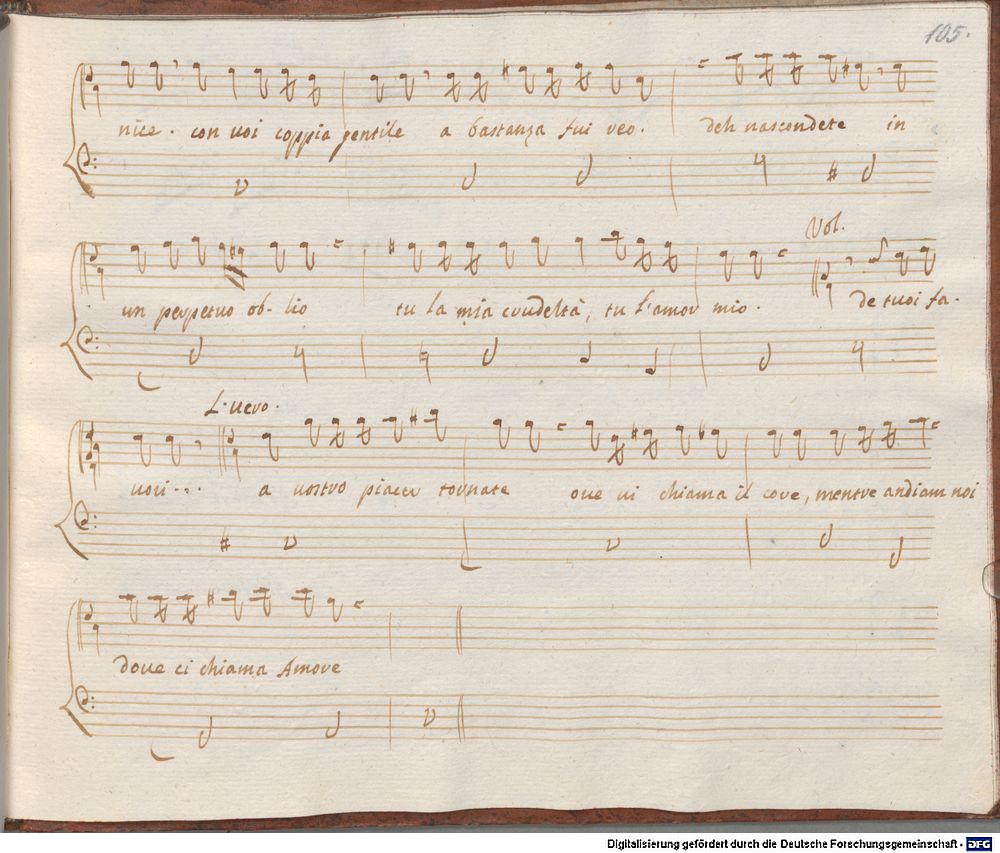 105.
nice. con uoi coppia gentile a bastanza fui reo. deh nascondete in
Vol.
un perpetuo ob-lio tu la mia crudeltà, tu l'amor mio. de tuoi fa-
L. uero.
uori... a uostro piacer tornate oue ui chiama il core, mentre andiam noi
doue ci chiama Amore
Digitalisierung gefördert durch die Deutsche Forschungsgemeinschaft - DFG